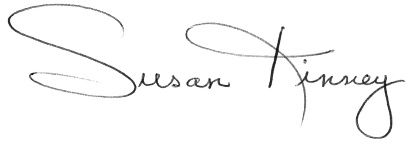 Susan Kinney